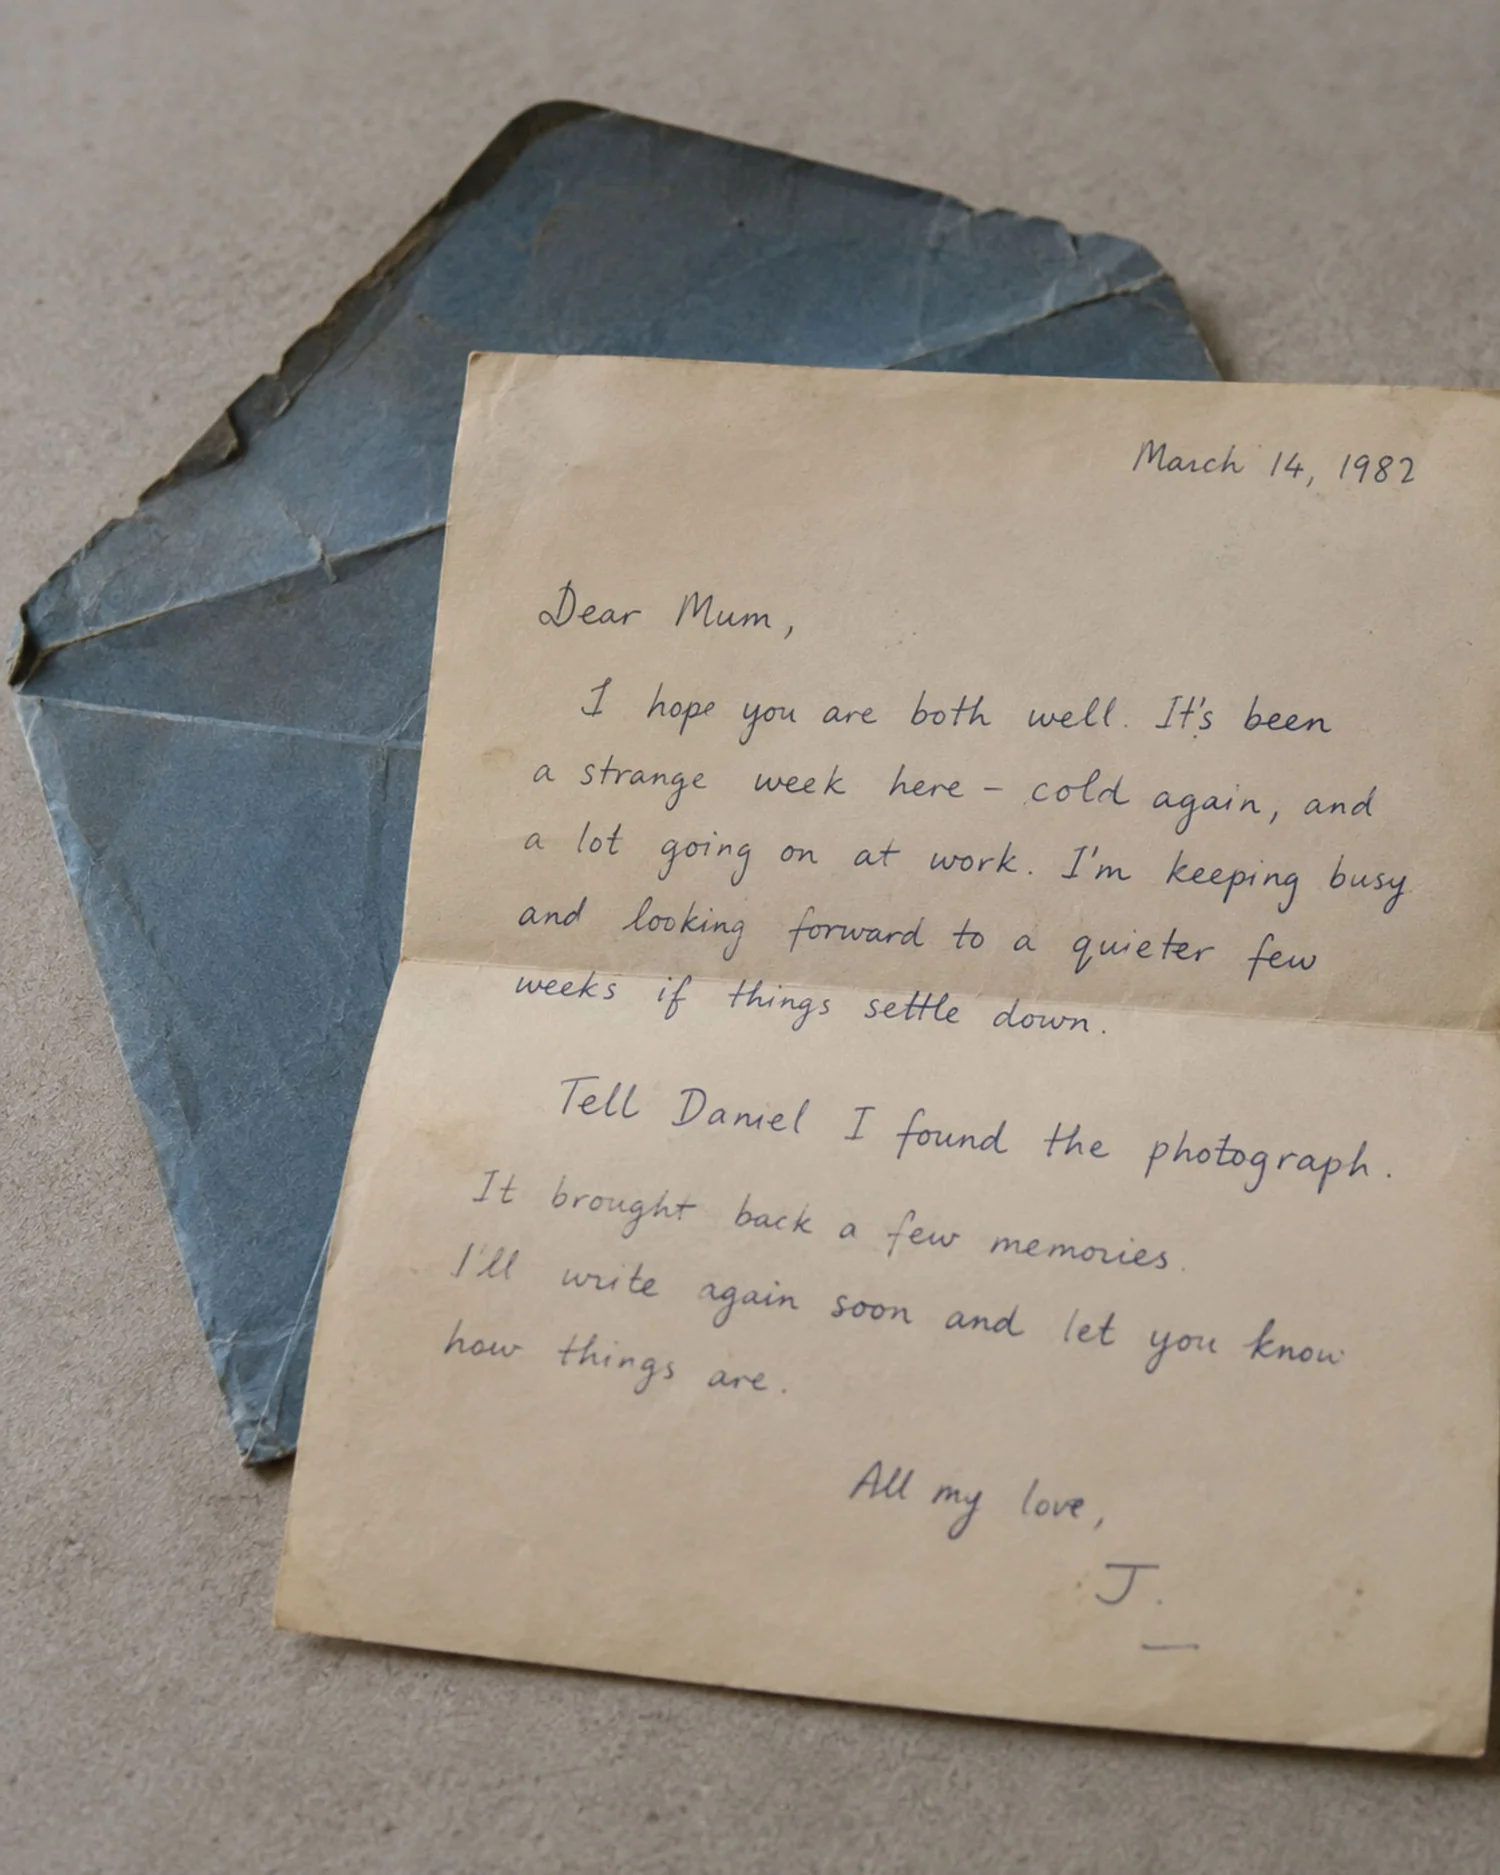 March 14, 1982
Dear Mum,
I hope you are both well. It's been
a strange week here – cold again, and
a lot going on at work. I'm keeping busy
and looking forward to a quieter few
weeks if things settle down.
Tell Daniel I found the photograph.
It brought back a few memories.
I'll write again soon and let you know
how things are.
All my love,
J.